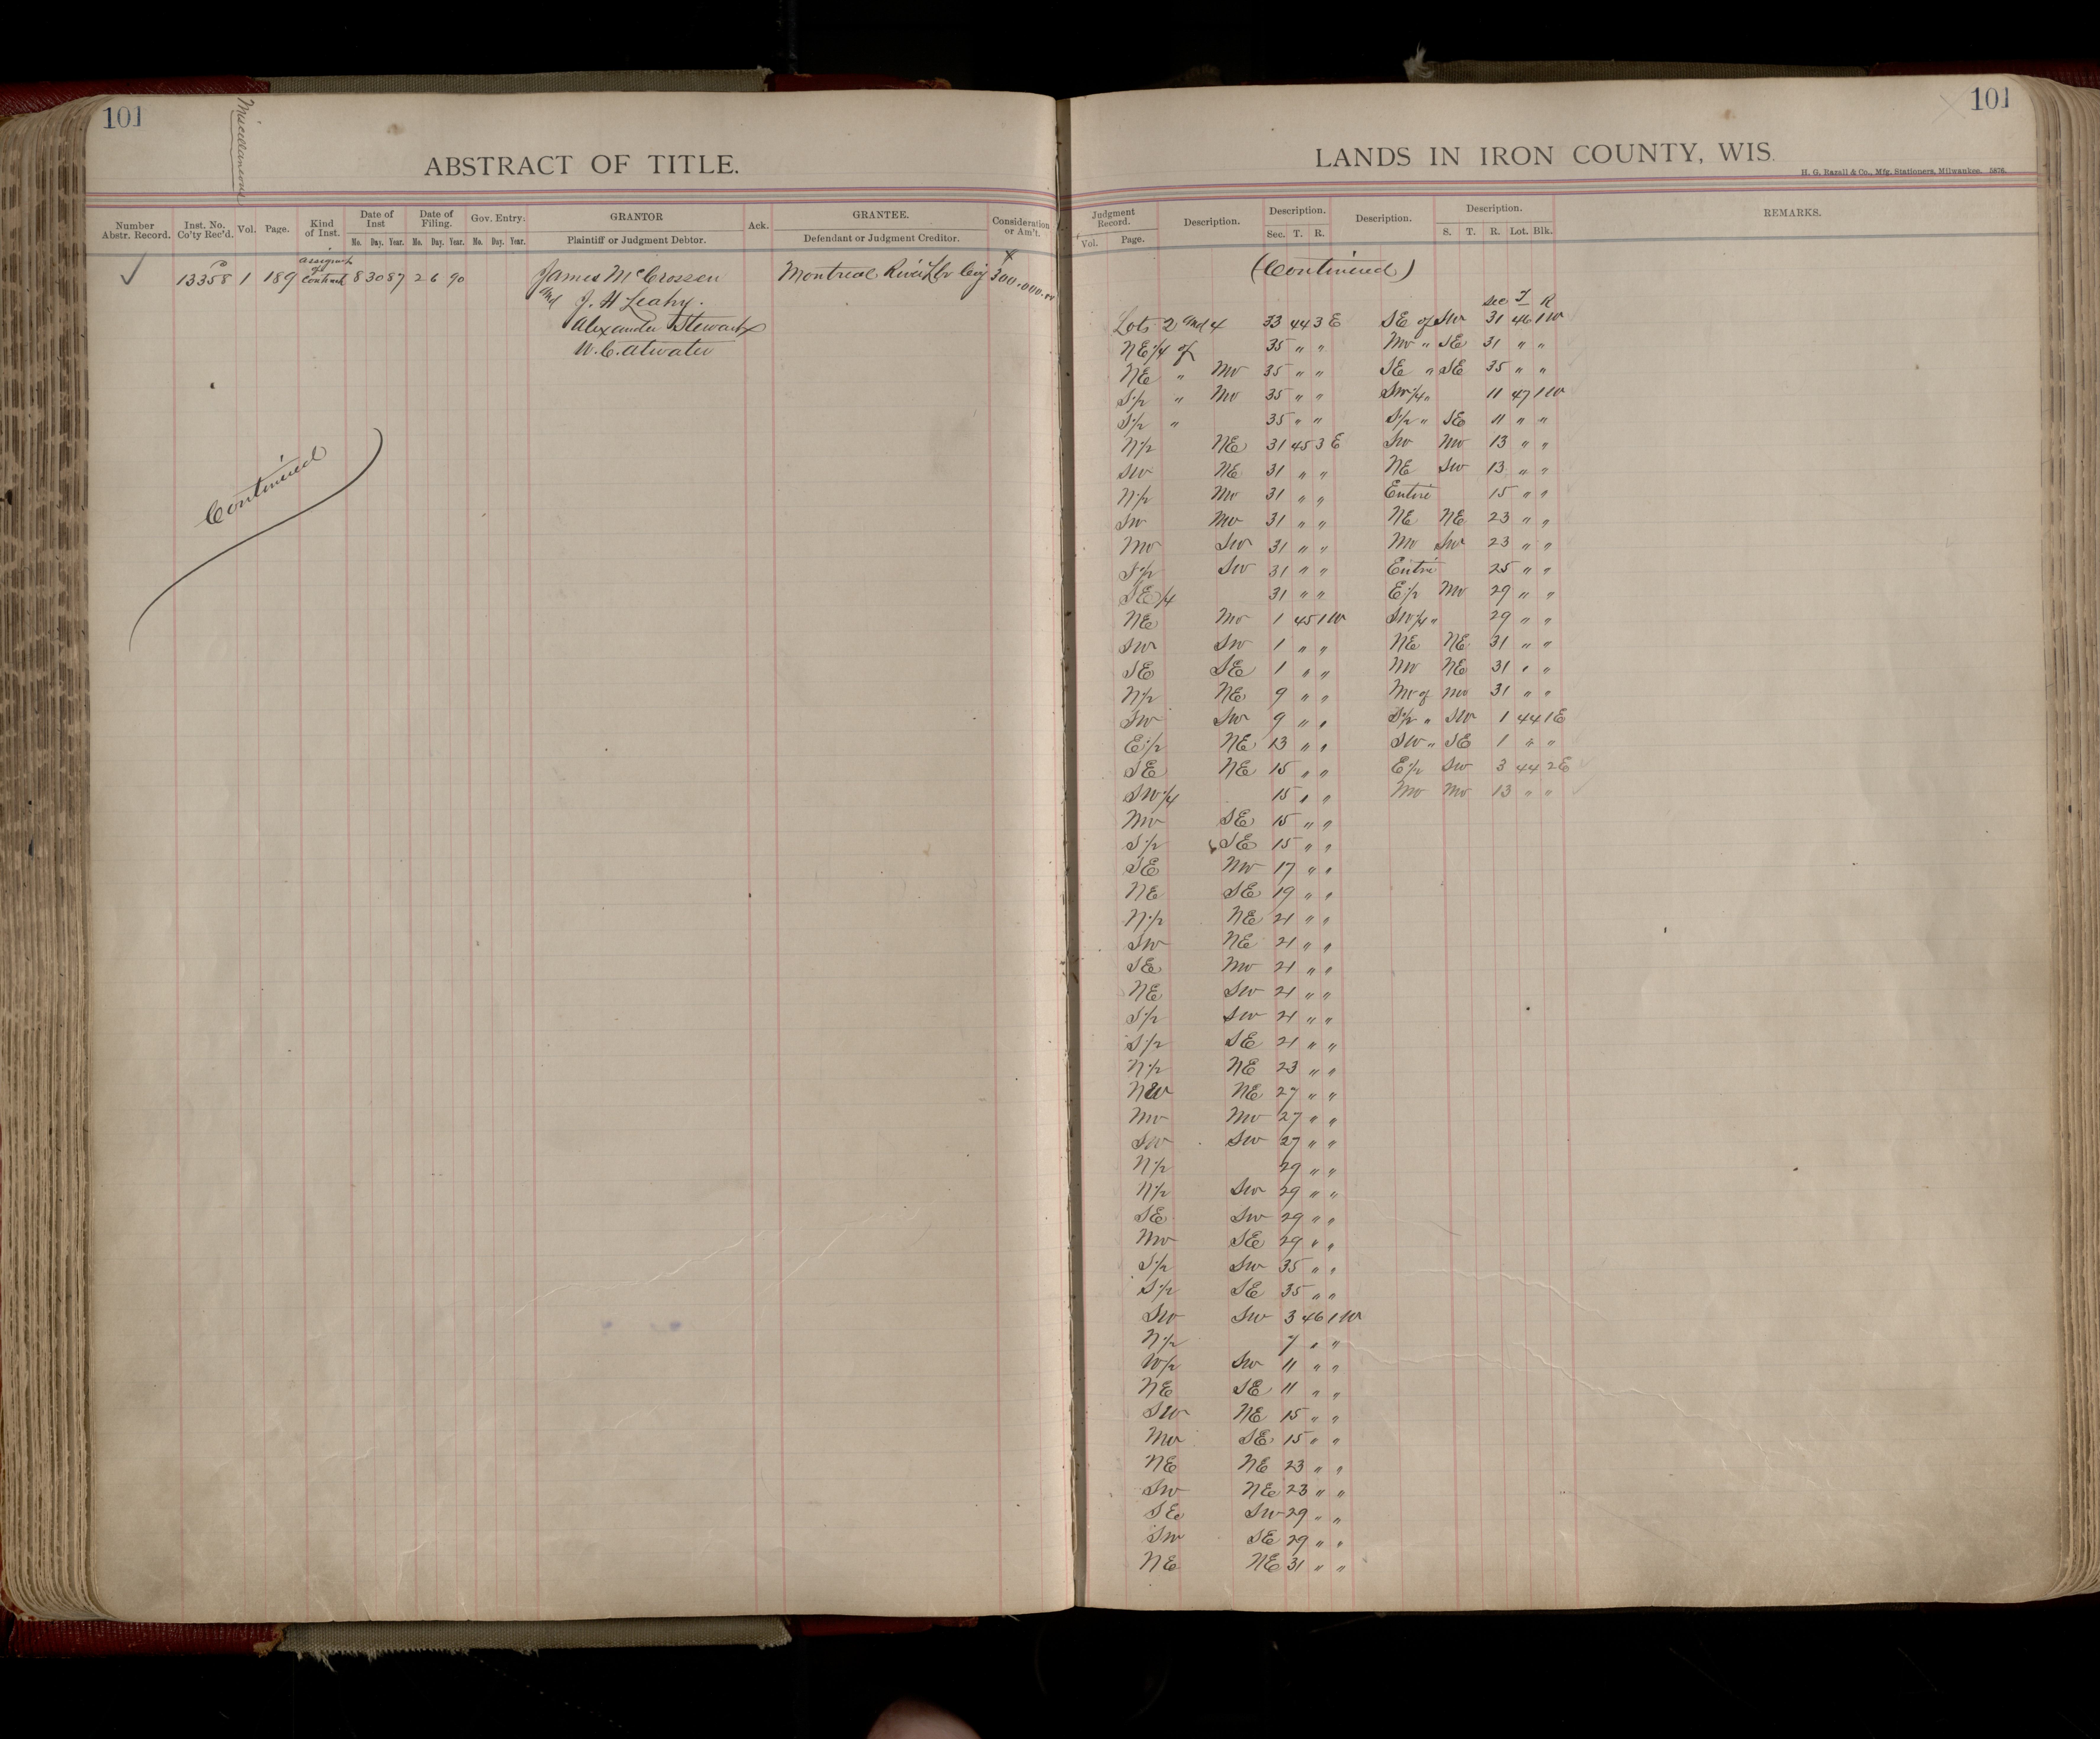 101
Miscellaneous
ABSTRACT OF TITLE.
Number Abstr. Record.
Inst. No. Co'ty Rec'd.
Vol.
Page.
Kind of Inst.
Date of Inst
Mo. Day. Year.
Date of Filing.
Mo. Day. Year.
Gov. Entry.
Mo. Day. Year.
GRANTOR
Plaintiff or Judgment Debtor.
Ack.
GRANTEE.
Defendant or Judgment Creditor.
Consideration or Am't.
✓ 13358 1 189 of Contract 8 30 87 2 6 90 James McCrossen Montreal River Lbr 300.000.00
and J. H Leahy.
Alexander Stewart
W. C. Atwater
Continued
101
LANDS IN IRON COUNTY, WIS.
H. G. Razall & Co., Mfg. Stationers, Milwaukee. 5876.
Judgment Record.
Vol. Page.
Description.
Description.
Sec. T. R.
Description.
Description.
S. T. R. Lot. Blk.
REMARKS.
(Continued)
Sec T R
Lots 2 and 4 33 44 3 E SE of SW 31 46 1 W
NE 1/4 of 35 " " NW " SE 31 " "
NE " NW 35 " " SE " SE 35 " "
S 1/2 " NW 35 " " SW 1/4 " 11 47 1 W
S 1/2 " 35 " " S 1/2 " SE 11 " "
N 1/2 NE 31 45 3 E SW NW 13 " "
SW NE 31 " " NE SW 13 " "
N 1/2 NW 31 " " Entire 15 " "
SW NW 31 " " NE NE 23 " "
NW SW 31 " " NW SW 23 " "
S 1/2 SW 31 " " Entire 25 " "
SE 1/4 31 " " E 1/2 NW 29 " "
NE NW 1 45 1 W SW 1/4 " 29 " "
SW SW 1 " " NE NE 31 " "
SE SE 1 " " NW NE 31 " "
N 1/2 NE 9 " " NW of NW 31 " "
SW SW 9 " " S 1/2 " SW 1 44 1 E
E 1/2 NE 13 " " SW " SE 1 " "
SE NE 15 " " E 1/2 SW 3 44 2 E
SW 1/4 15 " " NW NW 13 " "
NW SE 15 " "
S 1/2 SE 15 " "
SE NW 17 " "
NE SE 19 " "
N 1/2 NE 21 " "
SW NE 21 " "
SE NW 21 " "
NE SW 21 " "
S 1/2 SW 21 " "
S 1/2 SE 21 " "
N 1/2 NE 23 " "
NW NE 27 " "
NW NW 27 " "
SW SW 27 " "
N 1/2 29 " "
N 1/2 SW 29 " "
SE SW 29 " "
NW SE 29 " "
S 1/2 SW 35 " "
S 1/2 SE 35 " "
SW SW 3 46 1 W
N 1/2 7 " "
W 1/2 SW 11 " "
NE SE 11 " "
SW NE 15 " "
NW SE 15 " "
NE NE 23 " "
SW NE 23 " "
SE SW 29 " "
SW SE 29 " "
NE NE 31 " "